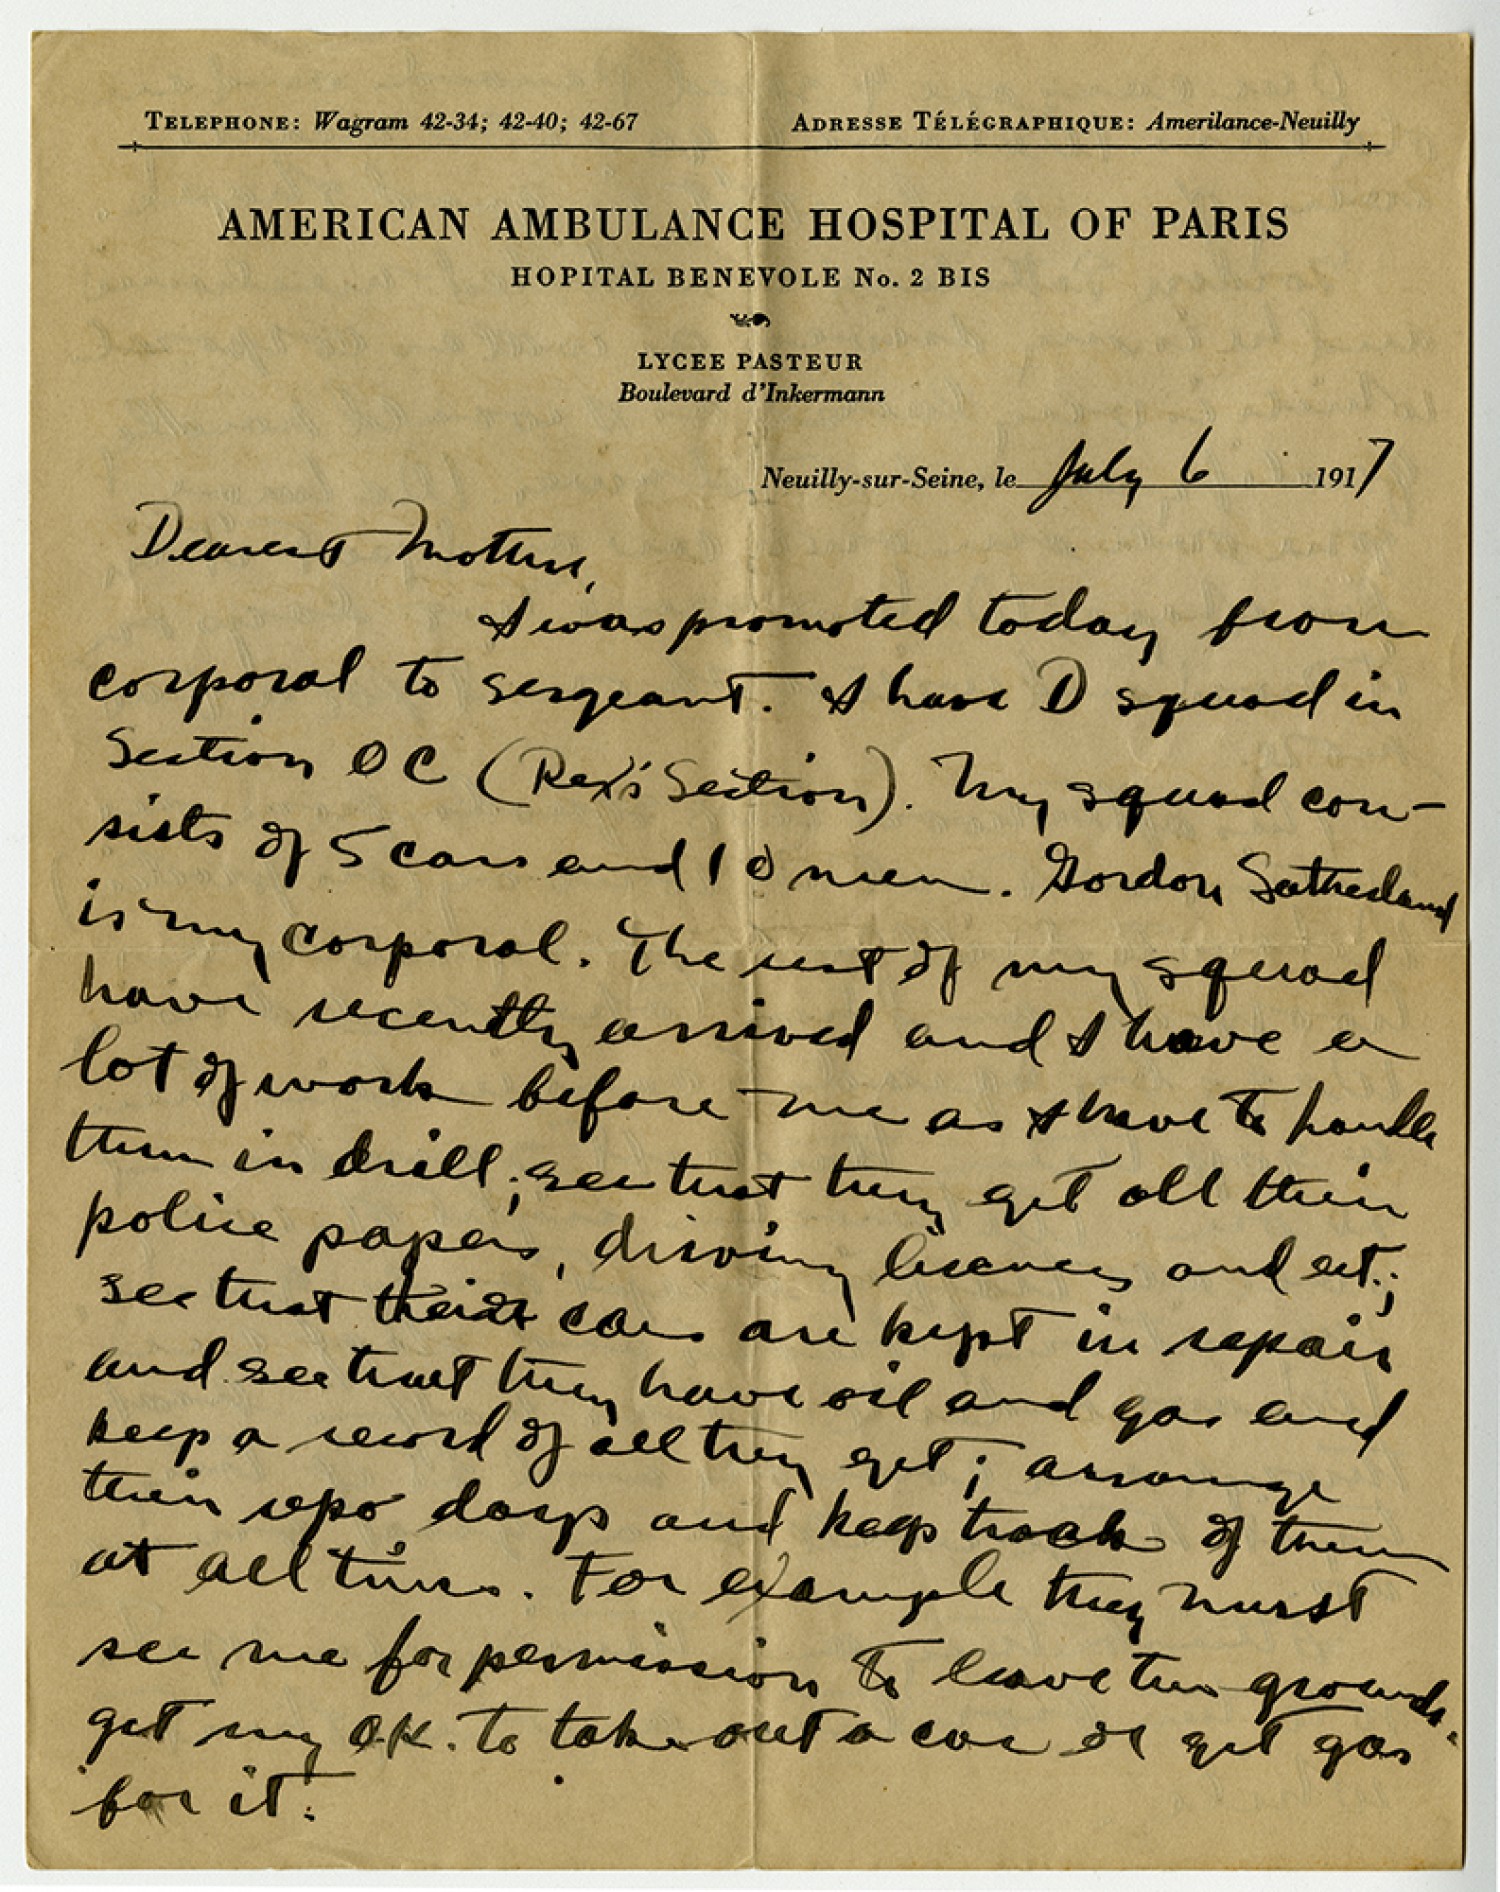 TELEPHONE: Wagram 42-34; 42-40; 42-67 ADRESSE TÉLÉGRAPHIQUE: Amerilance-Neuilly
AMERICAN AMBULANCE HOSPITAL OF PARIS
HOPITAL BENEVOLE No. 2 BIS
LYCEE PASTEUR
Boulevard d'Inkermann
Neuilly-sur-Seine, le July 6 1917
Dearest Mother,
I was promoted today from
corporal to sergeant. I have D squad in
Section OC (Rex's Section). My squad con-
sists of 5 cars and 10 men. Gordon Sutherland
is my corporal. The rest of my squad
have recently arrived and I have a
lot of work before me as I have to handle
them in drill; see that they get all their
police papers, driving licenses and ect.;
see that their cars are kept in repair
and see that they have oil and gas and
keep a record of all they get; arrange
their repo days and keep track of them
at all times. For example they must
see me for permission to leave the grounds.
get my O.K. to take out a car or get gas
for it.